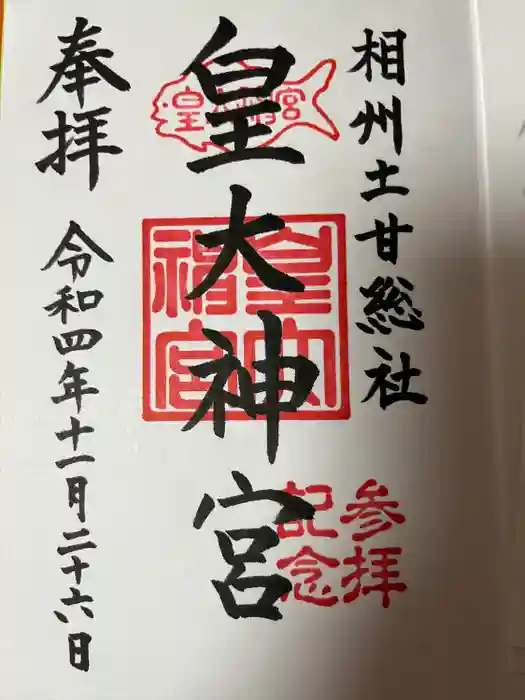 相州土甘総社
皇大神宮
皇大神宮
皇大
神宮
参拝
記念
奉拝
令和四年十一月二十六日